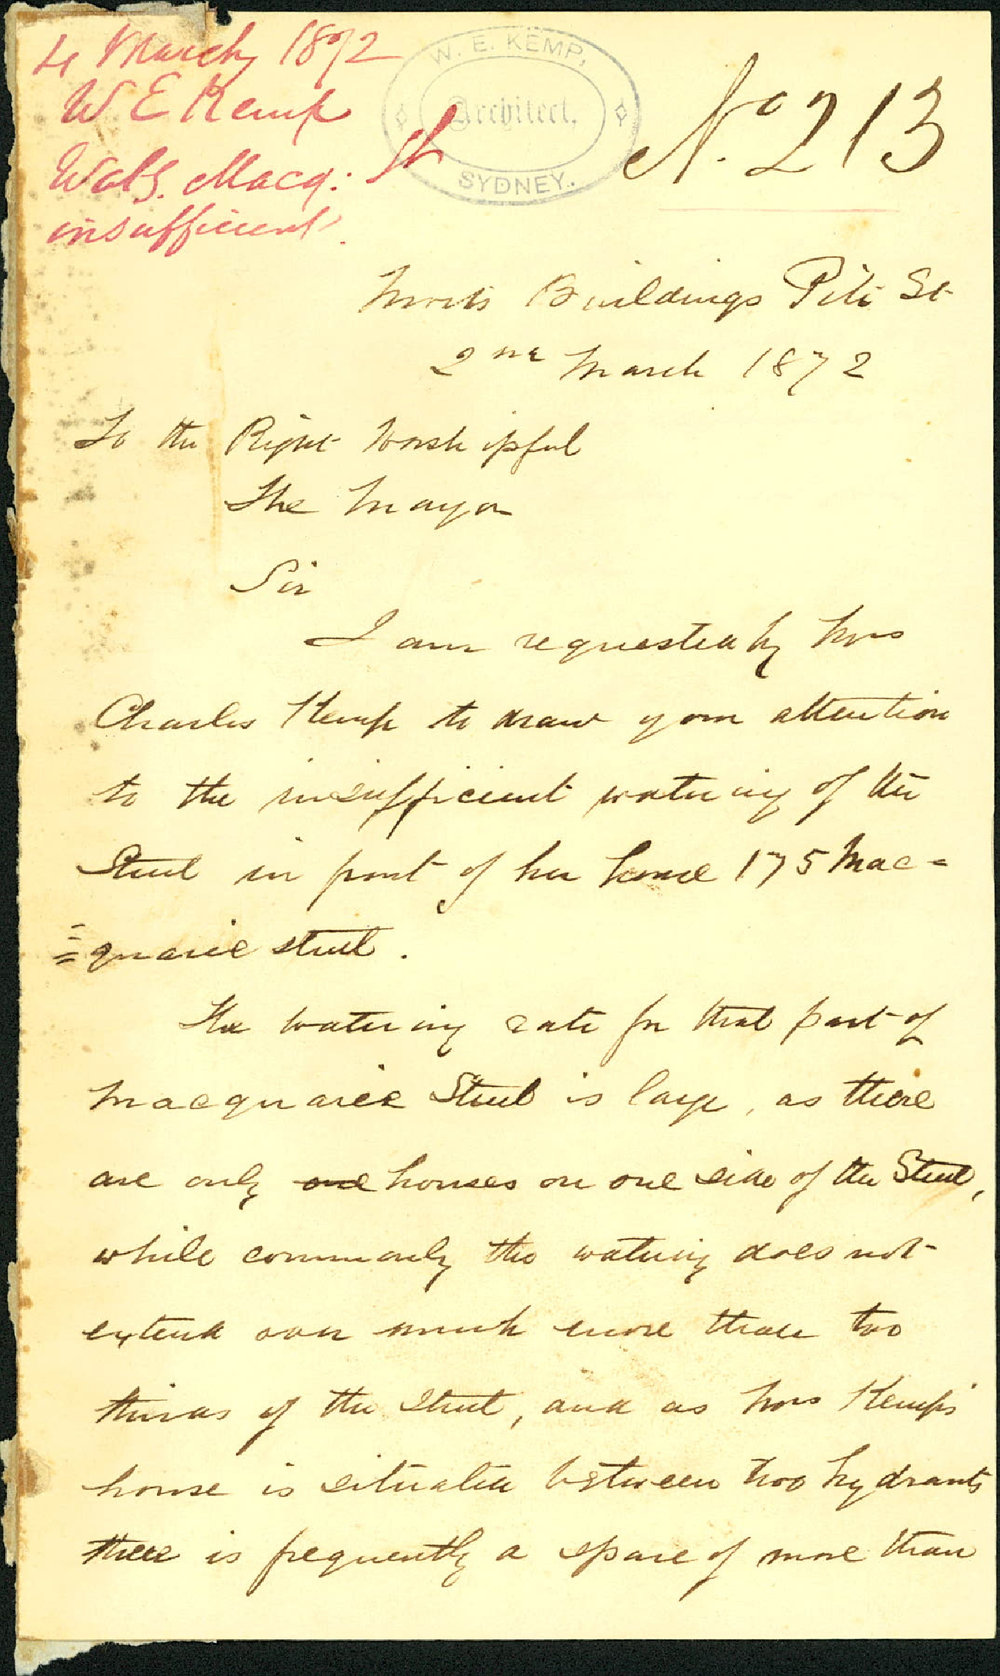 4 March 1872
W E Kemp
Watg. Macq: St
insufficient.
W. E. KEMP,
Architect,
SYDNEY.
No 213
Morts Buildings Pitt St
2nd March 1872
To the Right Worshipful
The Mayor
Sir
I am requested by Mrs
Charles Kemp to draw your attention
to the insufficient watering of the
Street in front of her house 175 Mac=
=quarie street.
The watering rate for that part of
Macquarie Street is large, as there
are only one houses on one side of the Street,
while commonly the watering does not
extend over much more than two
thirds of the street, and as Mrs Kemp's
house is situated between two hydrants
there is frequently a space of more than